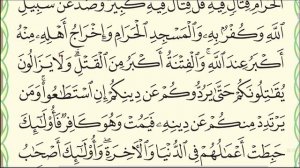 ٱلۡحَرَامِ قِتَالٖ فِيهِۖ قُلۡ قِتَالٞ فِيهِ كَبِيرٞۚ وَصَدٌّ عَن سَبِيلِ
ٱللَّهِ وَكُفۡرُۢ بِهِۦ وَٱلۡمَسۡجِدِ ٱلۡحَرَامِ وَإِخۡرَاجُ أَهۡلِهِۦ مِنۡهُ
أَكۡبَرُ عِندَ ٱللَّهِۚ وَٱلۡفِتۡنَةُ أَكۡبَرُ مِنَ ٱلۡقَتۡلِۗ وَلَا يَزَالُونَ
يُقَٰتِلُونَكُمۡ حَتَّىٰ يَرُدُّوكُمۡ عَن دِينِكُمۡ إِنِ ٱسۡتَطَٰعُواْۚ وَمَن
يَرۡتَدِدۡ مِنكُمۡ عَن دِينِهِۦ فَيَمُتۡ وَهُوَ كَافِرٞ فَأُوْلَٰٓئِكَ
حَبِطَتۡ أَعۡمَٰلُهُمۡ فِي ٱلدُّنۡيَا وَٱلۡأٓخِرَةِۖ وَأُوْلَٰٓئِكَ أَصۡحَٰبُ